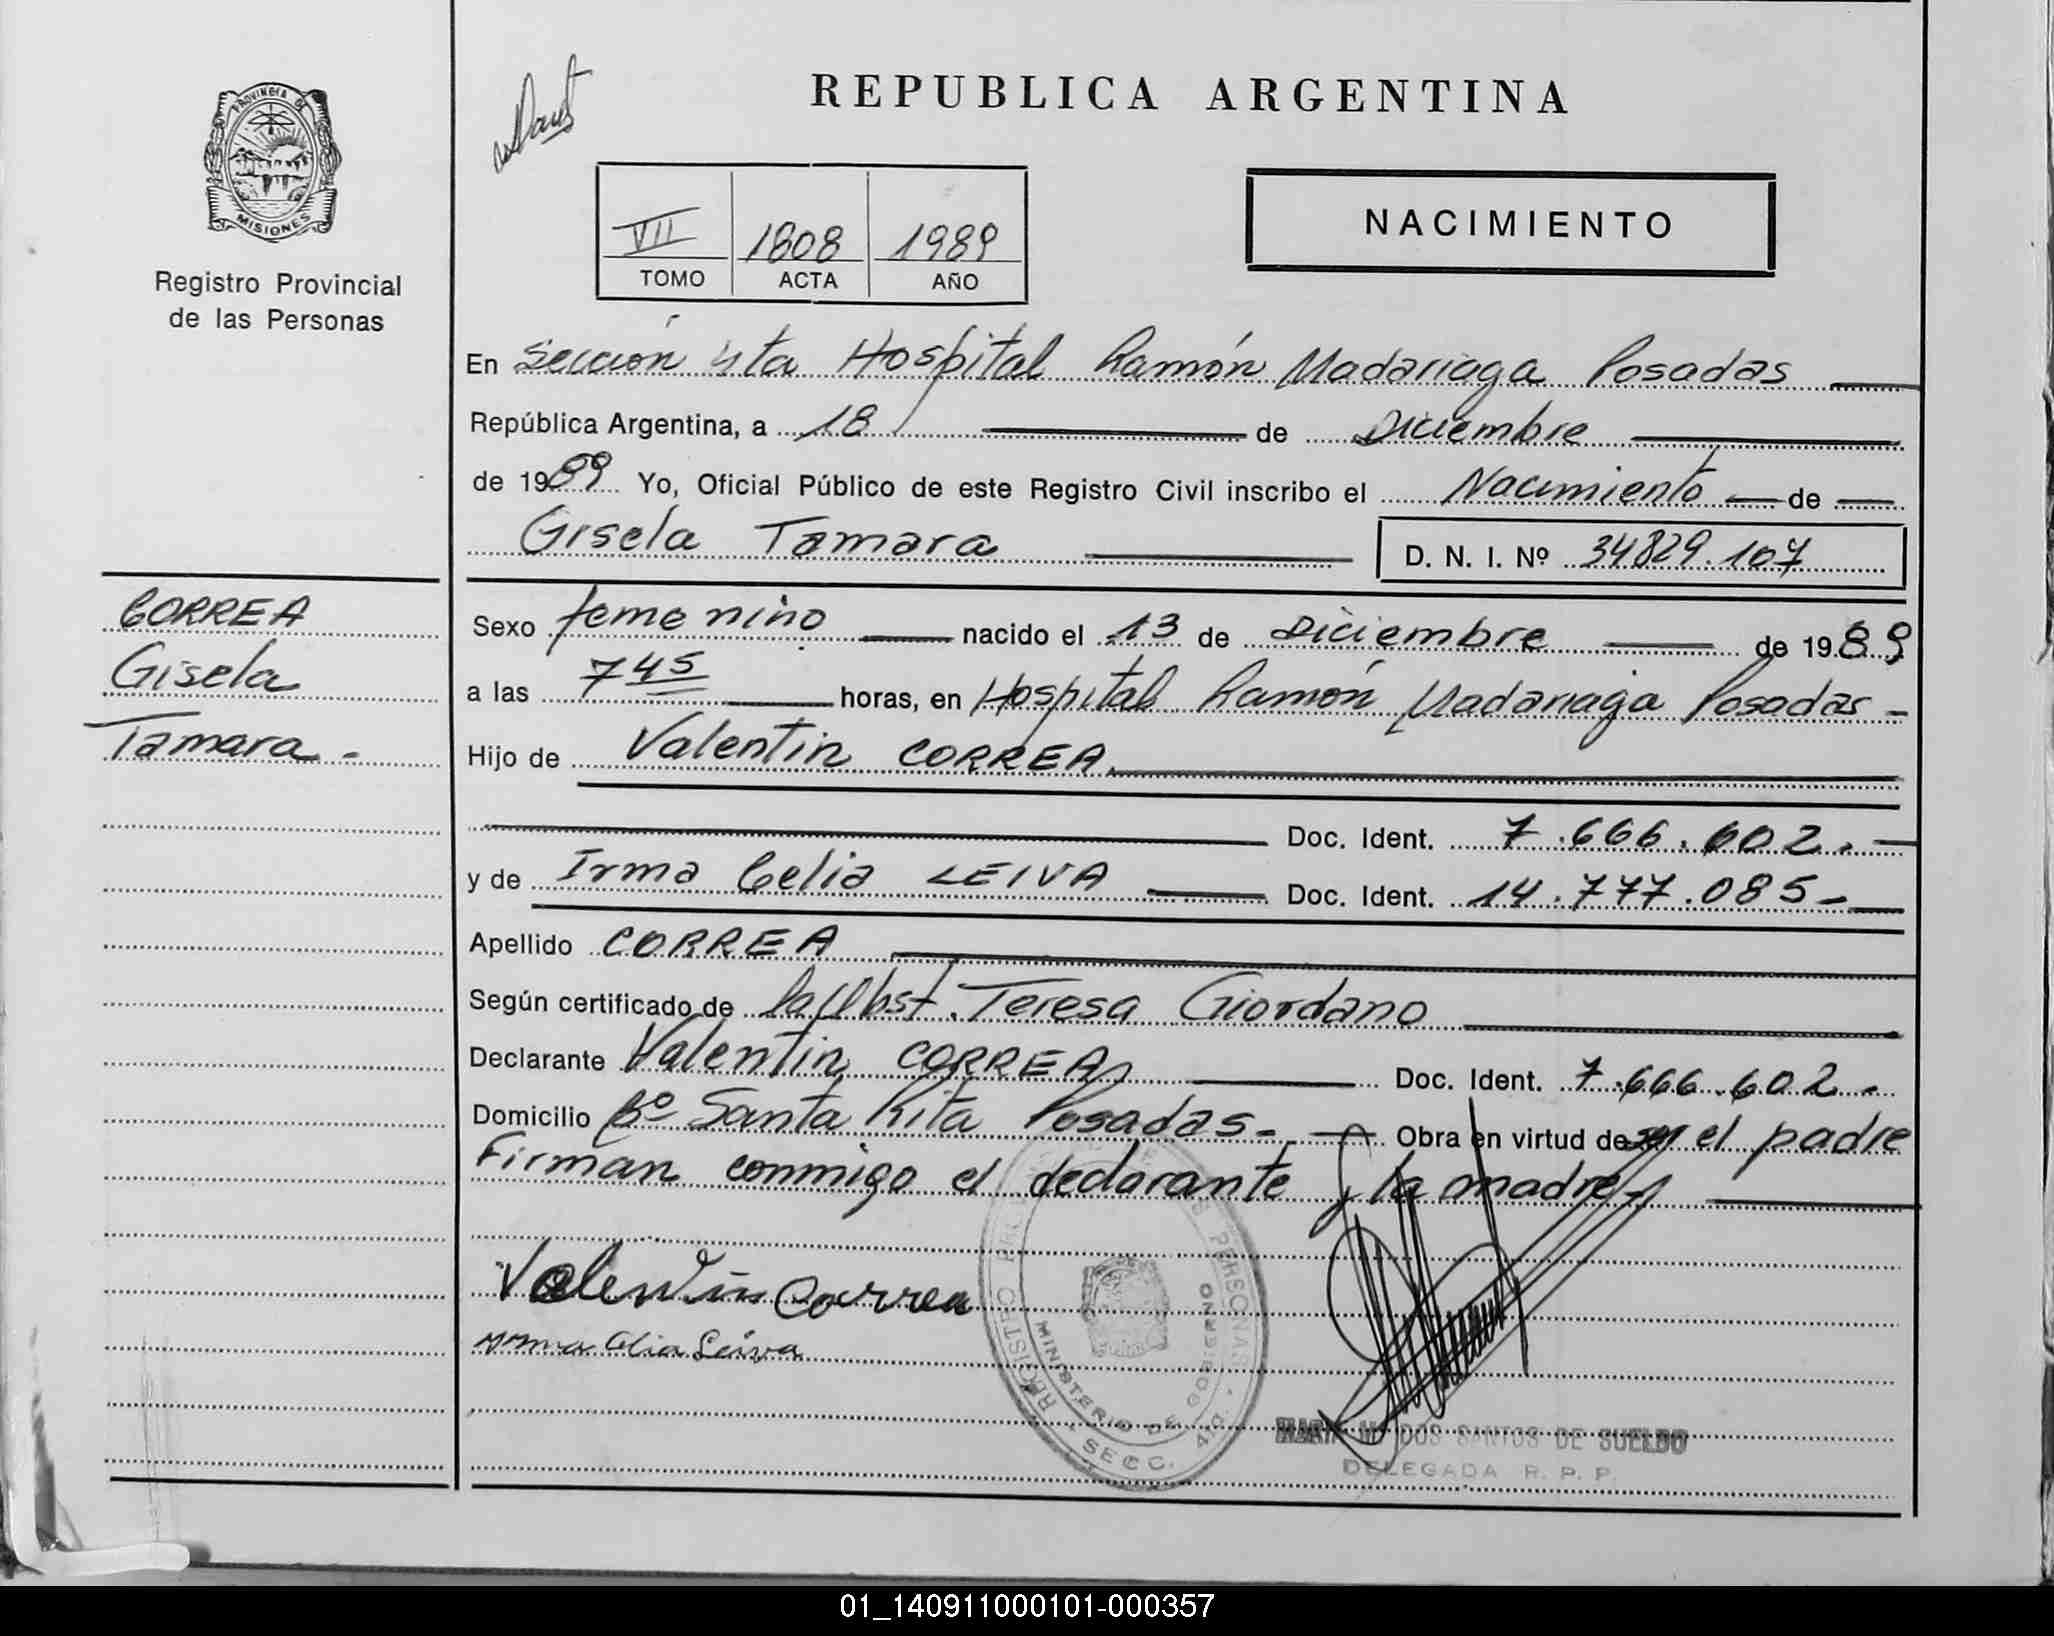 REPUBLICA ARGENTINA
PROVINCIA DE
MISIONES
Registro Provincial
de las Personas
VII 1808 1989
TOMO ACTA AÑO
NACIMIENTO
En Sección 4ta Hospital Ramón Madariaga Posadas
República Argentina, a 18 de Diciembre
de 1989 Yo, Oficial Público de este Registro Civil inscribo el Nacimiento de
Gisela Tamara D. N. I. Nº 34829.107
CORREA
Gisela
Tamara.-
Sexo femenino nacido el 13 de Diciembre de 1989
a las 7 45 horas, en Hospital Ramón Madariaga Posadas -
Hijo de Valentin CORREA
Doc. Ident. 7.666.602.-
y de Irma Celia LEIVA Doc. Ident. 14.777.085-
Apellido CORREA
Según certificado de la Obst. Teresa Giordano
Declarante Valentin CORREA Doc. Ident. 7.666.602.
Domicilio Bº Santa Rita Posadas- Obra en virtud de ser el padre
Firman conmigo el declarante y la madre-
Valentin Correa
Irma Celia Leiva
REGISTRO PROVINCIAL DE LAS PERSONAS
MINISTERIO DE GOBIERNO
SECC. 4ta.
MARIA M. DOS SANTOS DE SUELDO
DELEGADA R. P. P.
01_140911000101-000357